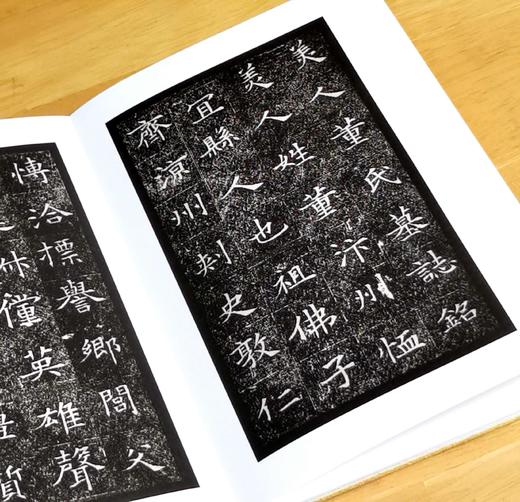 美人董氏墓誌銘
美人姓董汴州恤
宜縣人也祖佛子
齊涼州刾史敦仁
愽洽標譽鄉閭父
儻英雄聲
質